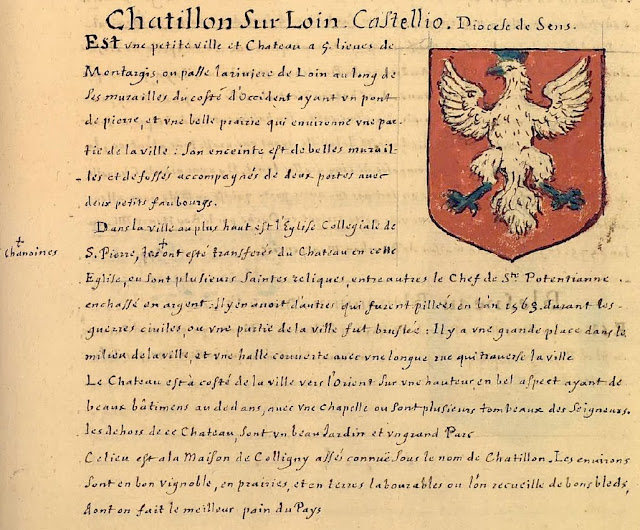 Chatillon Sur Loin. Castellio. Diocese de Sens.
Est vne petite ville et Chateau a 5. lieues de
Montargis, on passe la riuiere de Loin au long de
ses murailles du costé d'Occident ayant vn pont
de pierre, et vne belle prairie qui enuironne vne par
tie de la ville : San enceinte est de belles murail-
les et de fossés accompagnés de deux portes auec
deux petits faubourgs.
Dans la ville au plus haut est l'Eglise Collegiale de
S. Pierre, les + ont esté transferés du Chateau en celle
+ Chanoines
Eglise, ou sont plusieurs Saintes reliques, entre autres le Chef de Ste Potentianne
enchassé en argent : Il y en auoit d'autres qui furent pilleés en l'an 1563. durant les
guerres ciuiles, ou vne partie de la ville fut bruslée : Il y a vne grande place dans le
milieu de la ville, et vne halle couuerte auec vne longue rue qui trauerse la ville
Le Chateau est à costé de la ville vers l'Orient sur vne hauteur, en bel aspect ayant de
beaux bâtimens au dedans, auec vne chapelle ou sont plusieurs tombeaux des Seigneurs.
les dehors de ce Chateau, sont vn beau Jardin et vn grand Parc
Ce lieu est a la Maison de Colligny assés connuë sous le nom de Chatillon. Les enuirons
sont en bon vignoble, en prairies, et en terres labourables ou l'on recueille de bons bleds,
dont on fait le meilleur pain du Pays